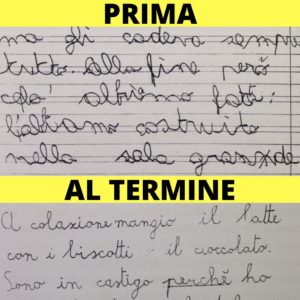 PRIMA
ma gli cadeva sempre
tutto. Alla fine però
abbiamo fatti:
l'abbiamo costruito
nella sala grande
AL TERMINE
A colazione mangio il latte
con i biscotti il cioccolato.
Sono in castigo perché ho